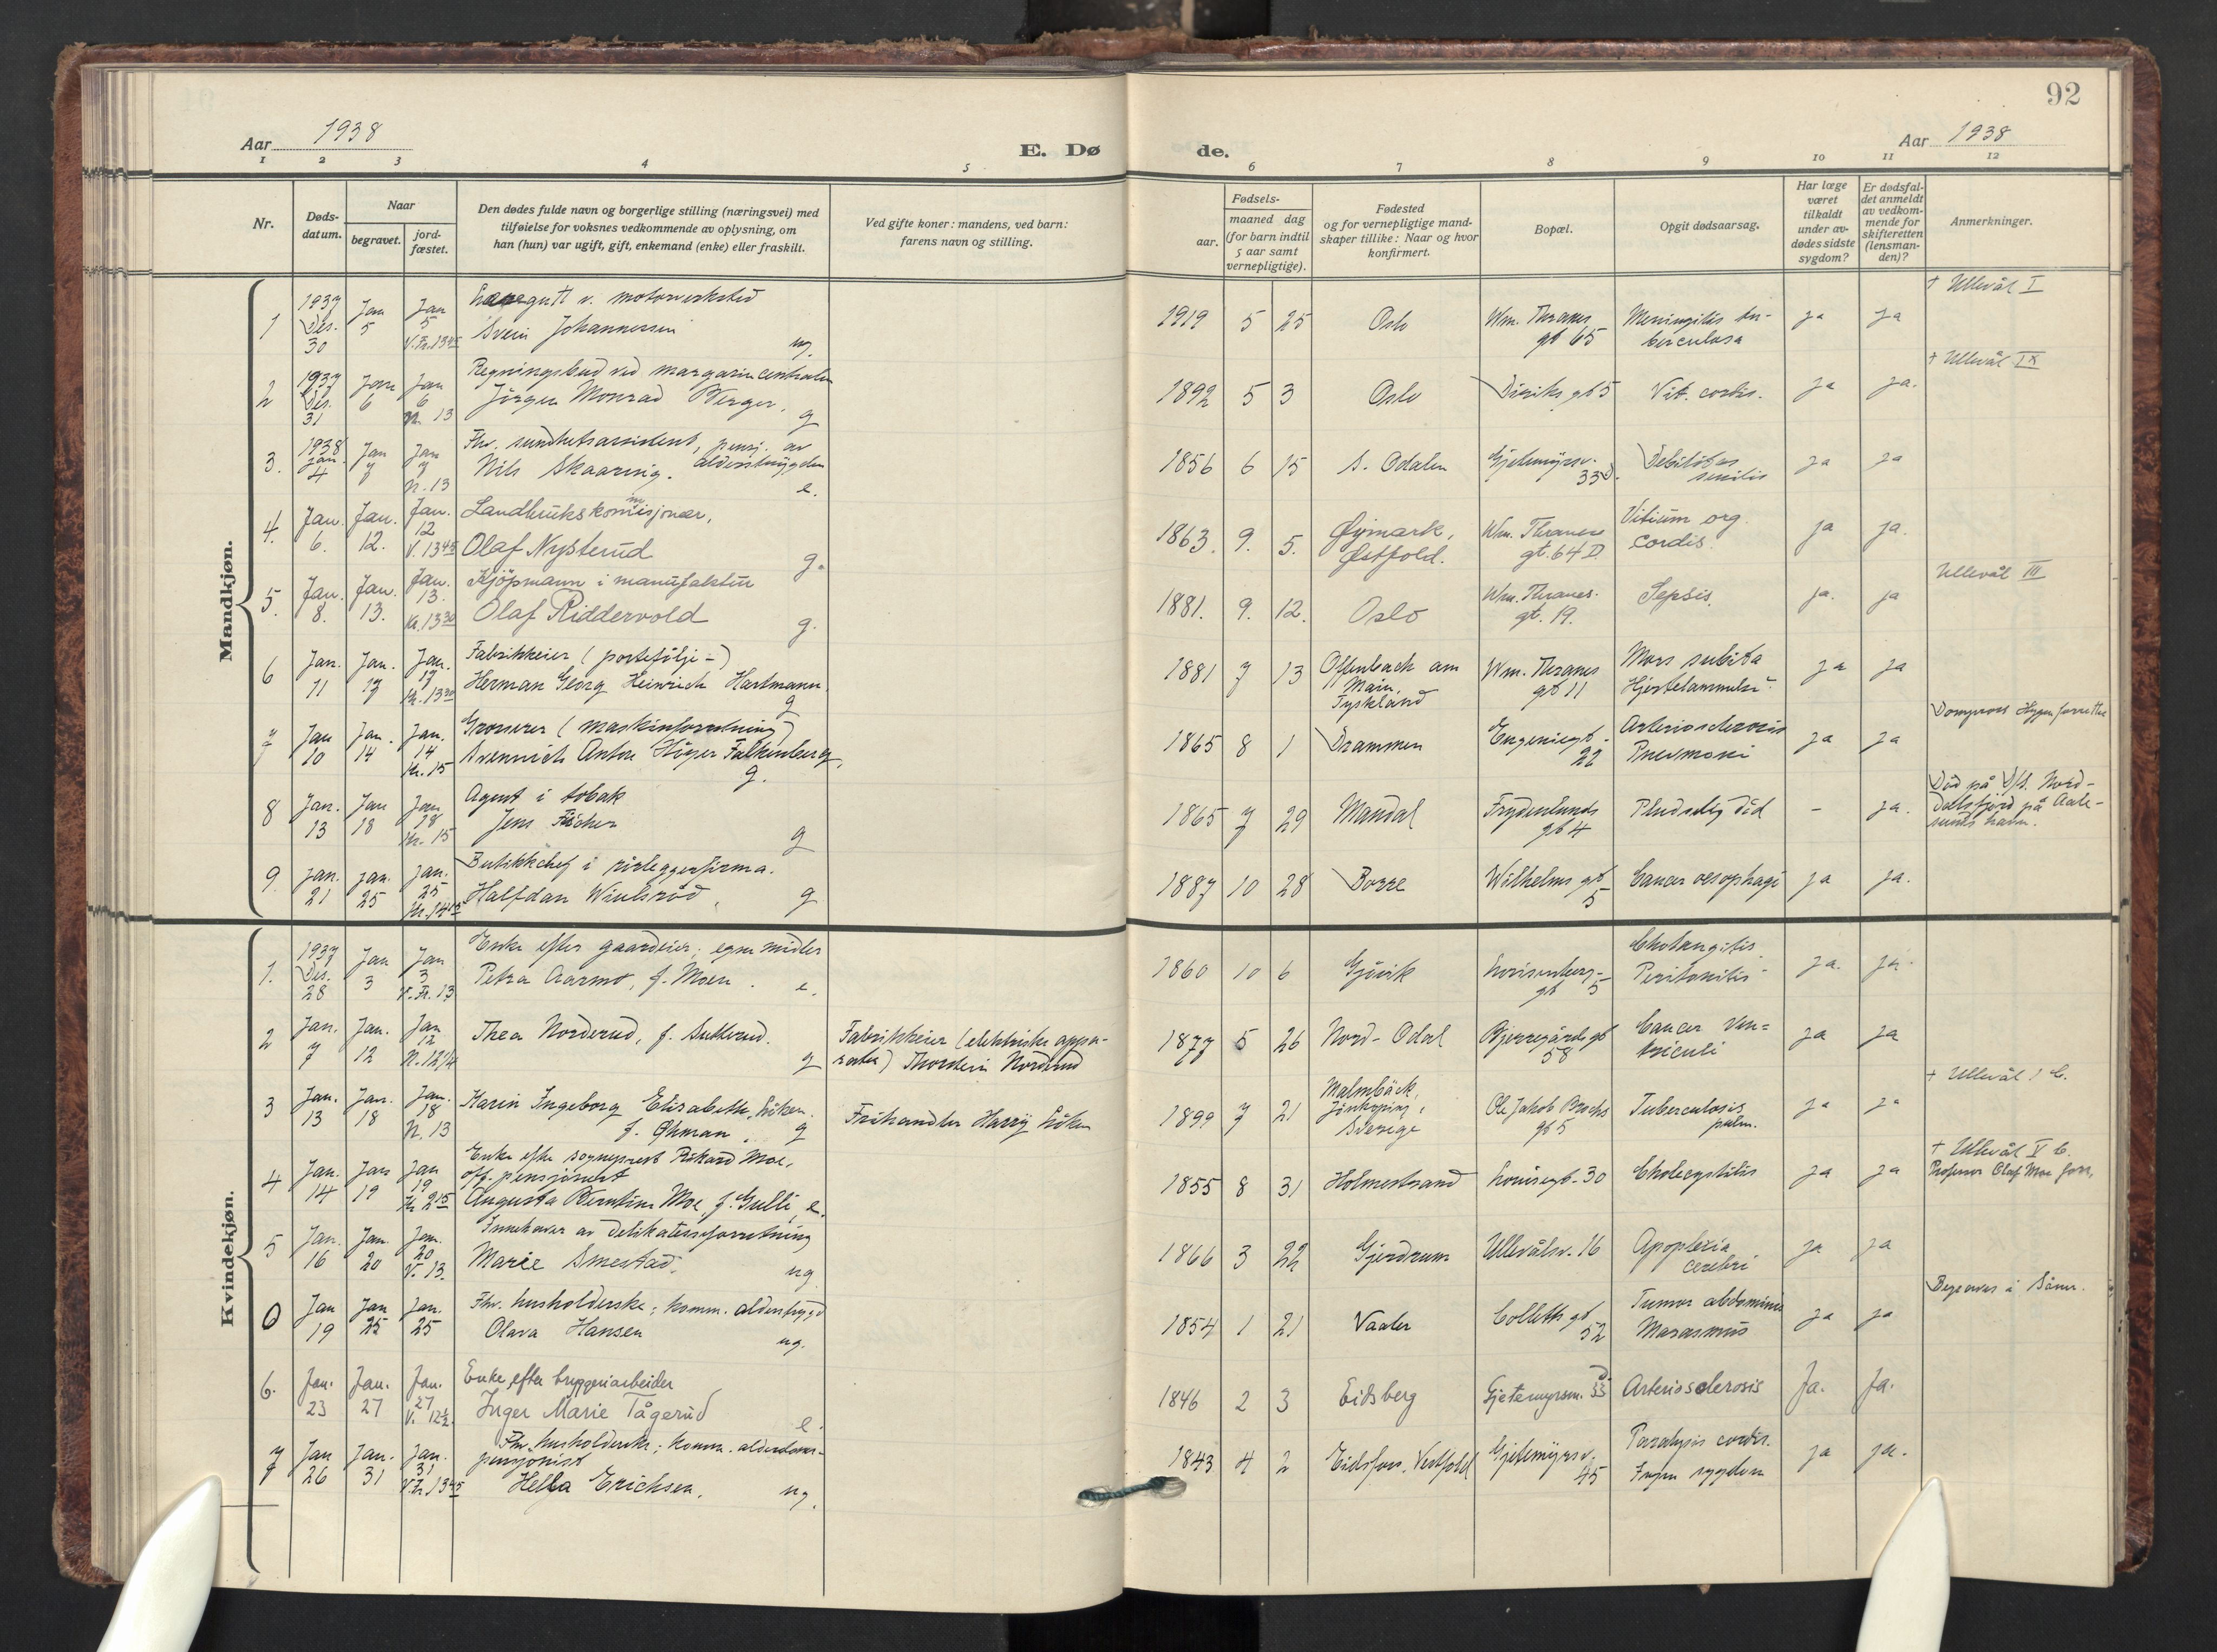 92
Aar 1938
E. Dø
de.
Aar 1938
1 2 3 4 5
6 7 8 9 10 11 12
Nr.
Døds-
datum.
Naar
begravet.
jord-
fæstet.
Den dødes fulde navn og borgerlige stilling (næringsvei) med
tilføielse for voksnes vedkommende av oplysning, om
han (hun) var ugift, gift, enkemand (enke) eller fraskilt.
Ved gifte koner: mandens, ved barn:
farens navn og stilling.
Fødsels-
aar.
maaned dag
(for barn indtil
5 aar samt
vernepligtige).
Fødested
og for vernepligtige mand-
skaper tillike: Naar og hvor
konfirmert.
Bopæl.
Opgit dødsaarsag.
Har læge
været
tilkaldt
under av-
dødes sidste
sygdom?
Er dødsfal-
det anmeldt
av vedkom-
mende for
skifteretten
(lensman-
den)?
Anmerkninger.
Mandkjøn.
1 1937 Des. 30 Jan 5 Jan 5 V.Fr. 13 45
v. motorverksted
Svein Johannessen ug.
1919 5 25 Oslo Wm. Thranes gt 65 Meningitis tu-
berculosa ja ja † Ullevål I
2 1937 Des. 31 Jan 6 Jan 6 13
Regningsbud ved margarincentralen
Jörgen Monrad Berger. g
1892 5 3 Oslo Diriks gt 5 Vit. cordis. ja ja. † Ullevål IX
3. 1938 Jan. 4 Jan 7 Jan 7 N. 13
Fhv. sundhetsassistent, pensj. av
alderstrygden
Nils Skaaring. e.
1856 6 15 S. Odalen Gjetemyrsv. 33D. Debilitas
senilis ja ja
4. Jan. 6. Jan. 12. Jan. 12 V. 13 45
Landbrukskommisjonær,
Olaf Nysterud g.
1863. 9. 5. Øymark,
Østfold. Wm. Thranes gt. 64 D Vitium org.
cordis. ja ja.
5. Jan. 8. Jan. 13. Jan. 13. Kr. 13 30
Kjöpmann i manufaktur
Olaf Riddervold g.
1881. 9. 12. Oslo Wm. Thranes. gt. 19. Sepsis. ja. ja Ullevål III
6 Jan. 11 Jan. 17 Jan. 17 Kr. 13 30
Fabrikkeier (portefölje-)
Herman Georg Heinrich Hartmann. g
1881 7 13 Offenbach am
Main,
Tyskland Wm. Thranes gt 11 Mors subita
Hjertelammelse. ja ja
7 Jan 10 Jan. 14 Jan. 14 Kr. 15
Grosserer (maskinforretning)
Anton Höger Falkenberg, g.
1865 8 1 Drammen Eugeniegt. 22 Arteriosclerosis
Pneumoni ja ja Domprost Hygen forrettet
8 Jan. 13 Jan 18 Jan 18 Kr. 15
Agent i tobak
Jens g
1865 7 29 Mandal Frydenlunds gt 4 Pludselig död - ja. Död på D/S. Nord-
dalsfjord på Aale-
sunds havn.
9. Jan. 21 Jan. 25 Jan. 25 Kr. 14
Butikkchef i rörleggerfirma.
Halfdan Wiulsröd, g
1887 10 28 Borre Wilhelms gt 5 Cancer oesophagi ja ja.
Kvindekjøn.
1. 1937 Des. 28 Jan 3 Jan 3 V. Fr. 13
Enke efter gaardeier; egne midler
Petra Aarmo, f. Moen. e.
1860 10 6 Gjövik Lovisenberg-
gt 5 Cholangitis.
Peritonitis ja. ja.
2 Jan. 7 Jan. 12 Jan 12 N. 12 1/4
Thea Norderud, f. Sutterud. g
Fabrikkeier (elektriske appa-
rater) Norderud
1877 5 26 Nord-Odal Bjerregårds gt 58 Cancer Ven-
triculi ja ja
3 Jan. 13 Jan. 18 Jan. 18 N. 13
Karin Ingeborg Elisabeth Löken.
f. Øhman. g
Frihandler Harry Löken
1899 7 21 Malmbäck,
Jönköping,
Sverige Ole Jakob Brochs gt 5 Tuberculosis
pulm. ja ja † Ullevål C.
4 Jan. 14 Jan 19 Jan 19 Kr 2 15
Enke efter sogneprest Rikard Moe,
off. pensjonist
Augusta Berntine Moe, f. Gulli, e.
1855 8 31 Holmestrand Louisegt. 30 Cholecystitis ja ja † Ullevål V C.
Professor Olaf Moe forr.
5 Jan. 16 Jan. 20 Jan. 20 V. 13.
Innehaver av delikatesseforretning
Marie Smestad. ug
1866 3 22 Gjerdrum Ullevålsv. 16 Apoplexia
cerebri ja ja
0 Jan 19 Jan 25 Jan. 25
Fhv. husholderske; komm. alderstrygd
Olava Hansen ug.
1854 1 21 Vaaler Colletts gt 52 Tumor abdominis
Marasmus ja ja Begraves i Såner.
6. Jan. 23 Jan. 27 Jan. 27 V. 12 1/2.
Enke efter bryggeriarbeider
Inger Marie Tågerud e.
1846 2 3 Eidsberg Gjetemyrsv. 33 D Arteriosclerosis Ja. Ja.
7 Jan 26 Jan. 31 Jan. 31 V.Fr. 13 45
Fhv. husholderske; komm. alderdoms-
pensjonist
Hella Erichsen. ug.
1843 4 2 Eidsfoss, Vestfold Gjetemyrsv. 45 Paralysis cordis.
Ingen sygdom ja ja.